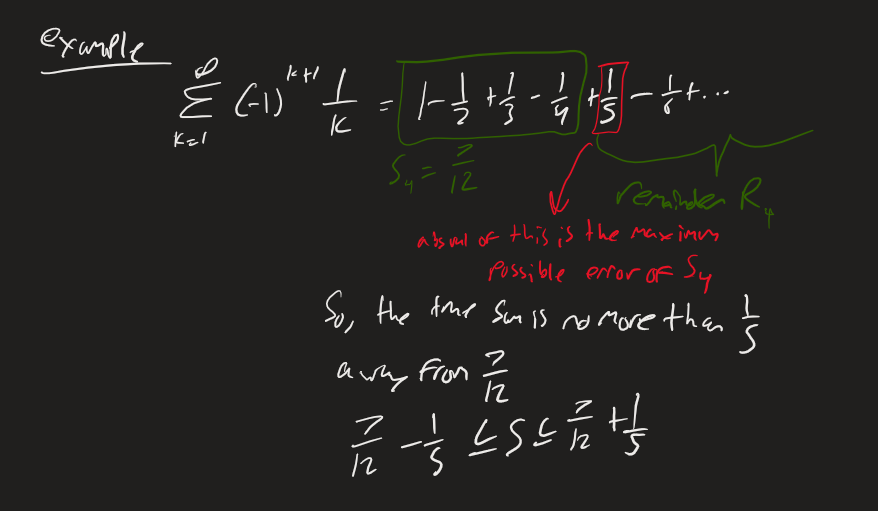 example
∞ ∑ k=1 (-1)^{k+1} 1/k = 1 - 1/2 + 1/3 - 1/4 + 1/5 - 1/6 + ...
S_4 = 7/12
remainder R_4
absval of this is the maximum
possible error of S_4
So, the true sum is no more than 1/5
away from 7/12
7/12 - 1/5 ≤ S ≤ 7/12 + 1/5